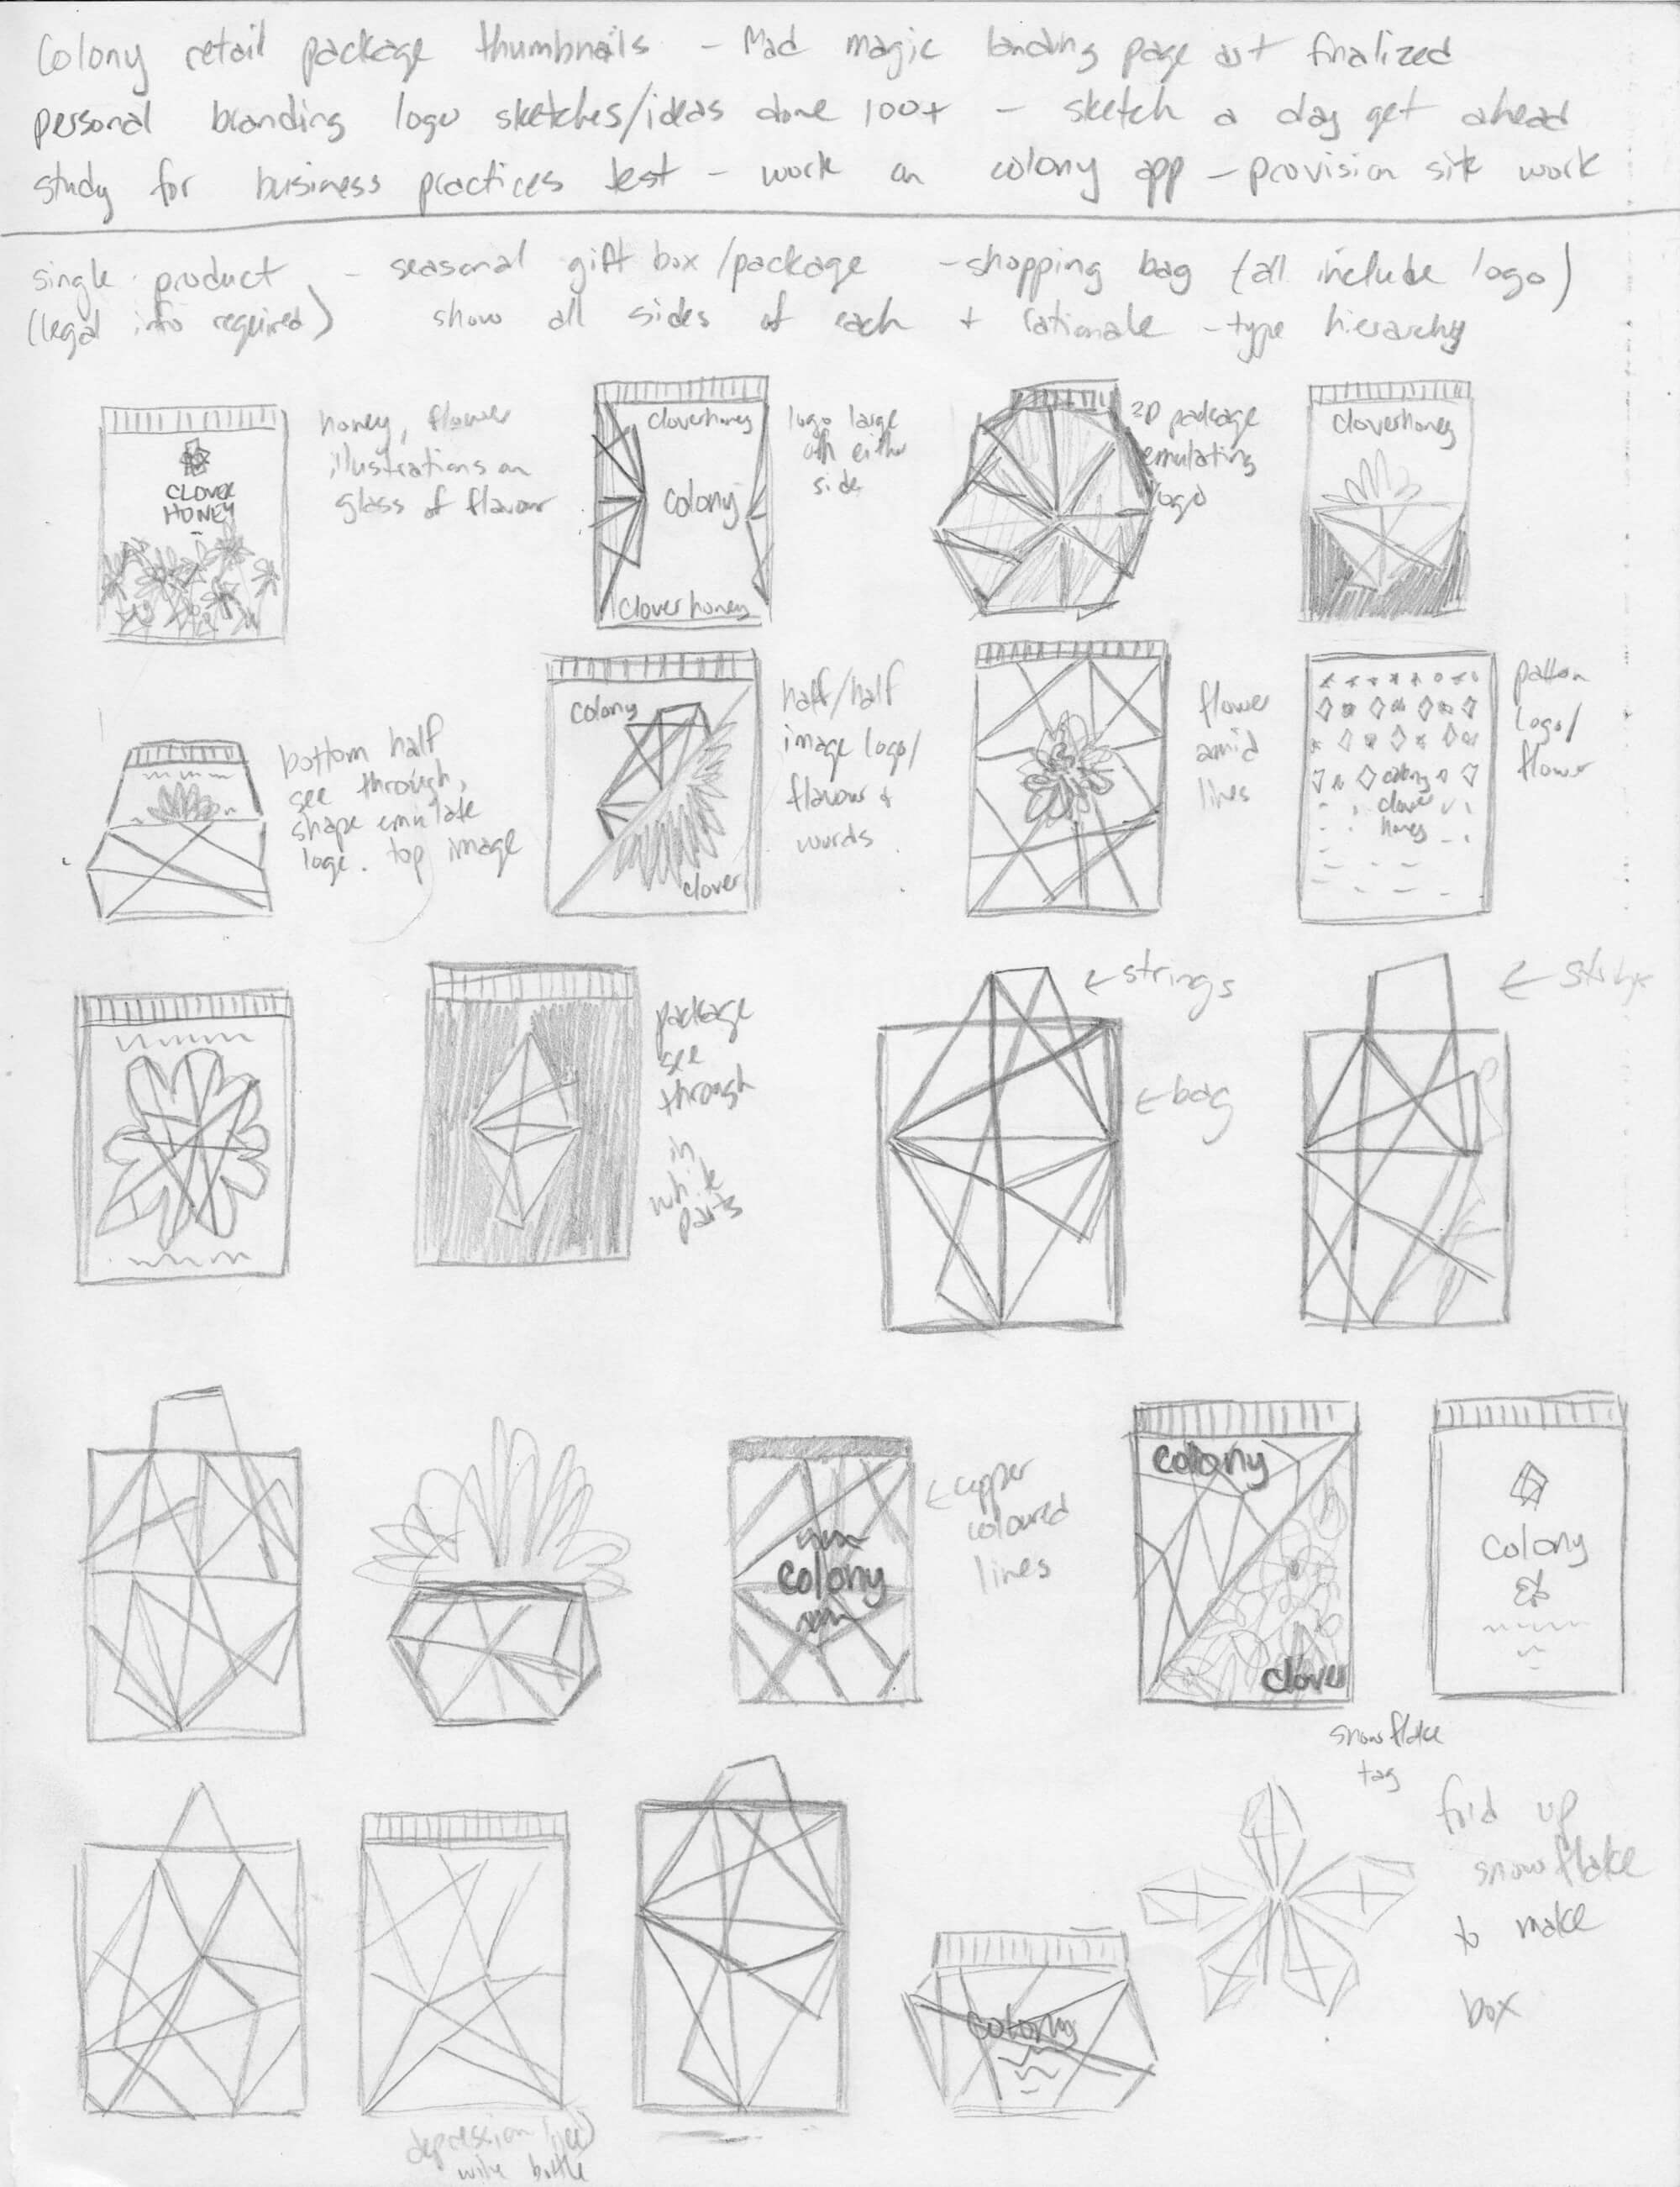 Colony retail package thumbnails - Mad magic landing page art finalized
personal branding logo sketches/ideas done 100+ - sketch a day get ahead
study for business practices test - work on colony app - provision site work
single product - seasonal gift box/package - shopping bag (all include logo)
(legal info required) show all sides of each + rationale - type hierarchy
honey, flower
illustrations on
glass of flavour
CLOVER
HONEY
cloverhoney
colony
cloverhoney
logo large
on either
side
3D package
emulating
logo
cloverhoney
bottom half
see through,
shape emulate
logo. top image
colony
clover
half/half
image logo/
flavour +
words
flower
amid
lines
colony
clover
honey
pattern
logo/
flower
package
see
through
in
white
parts
← strings
← bag
← strings
colony
← copper
coloured
lines
colony
clover
colony
snowflake
tag
fold up
snowflake
to make
box
colony
depression
wine bottle